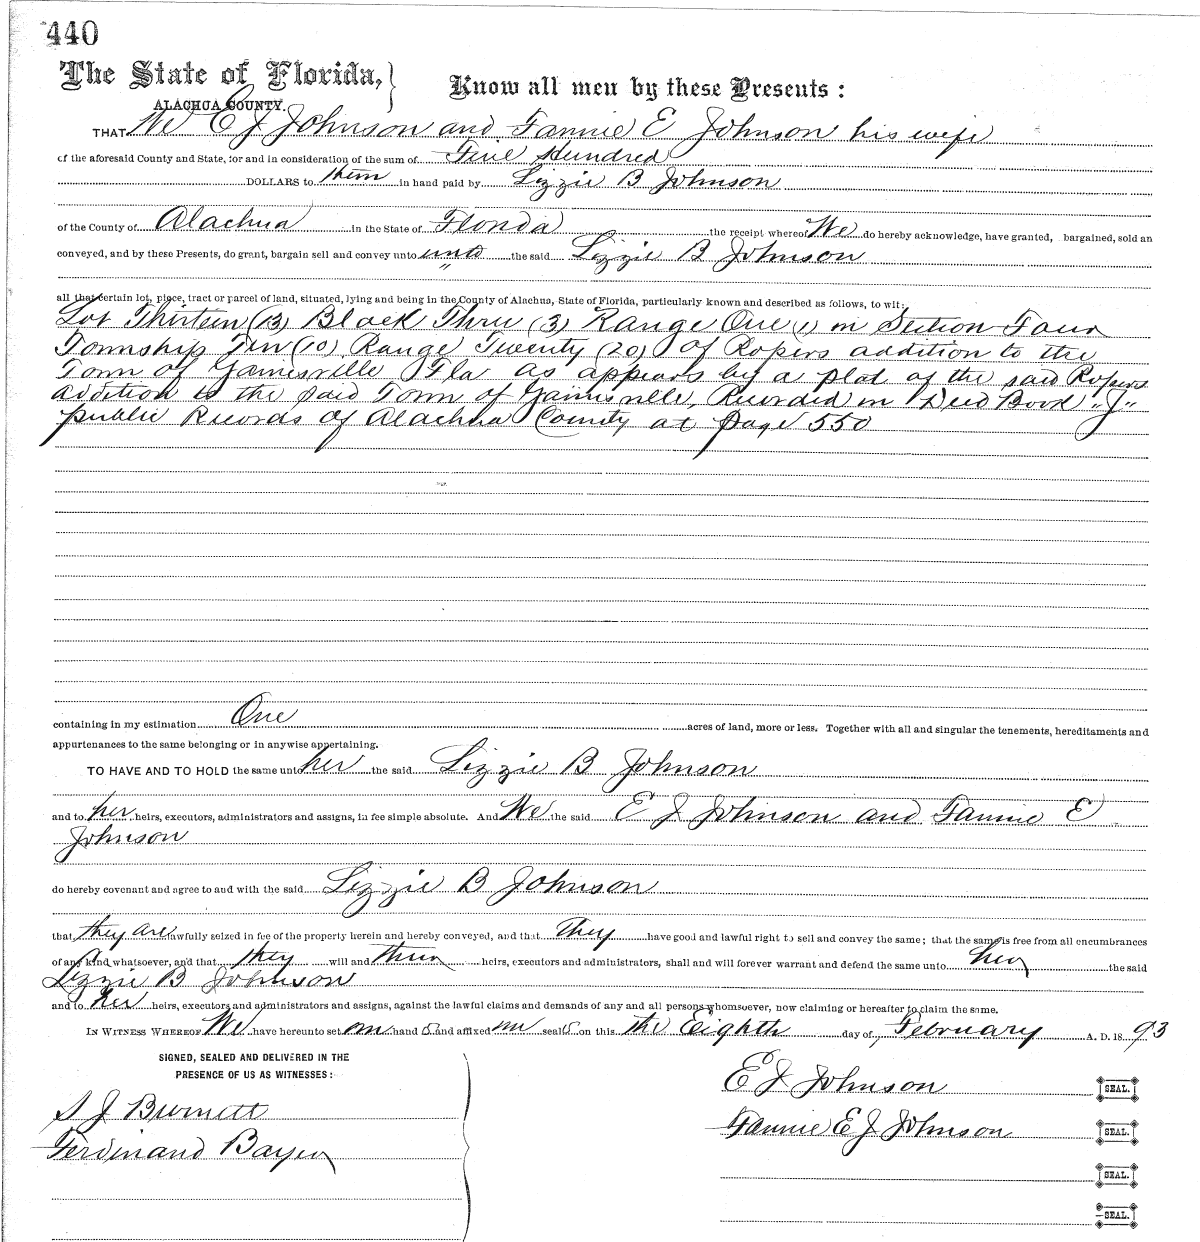 440
The State of Florida, } Know all men by these Presents :
ALACHUA COUNTY.
THAT We E J Johnson and Fannie E Johnson his wife
of the aforesaid County and State, for and in consideration of the sum of Five Hundred
DOLLARS to them in hand paid by Lizzie B Johnson
of the County of Alachua in the State of Florida the receipt whereof We do hereby acknowledge, have granted, bargained, sold an
conveyed, and by these Presents, do grant, bargain sell and convey unto unto the said Lizzie B Johnson
"
all that certain lot, piece, tract or parcel of land, situated, lying and being in the County of Alachua, State of Florida, particularly known and described as follows, to wit:
Lot Thirteen (13) Block Three (3) Range One (1) in Section Four
Township Ten (10) Range Twenty (20) of Ropers addition to the
Town of Gainesville Fla as appears by a plat of the said Ropers
addition to the said Town of Gainesville, Recorded in Deed Book "J"
public Records of Alachua County at page 550
containing in my estimation One acres of land, more or less. Together with all and singular the tenements, hereditaments and
appurtenances to the same belonging or in anywise appertaining.
TO HAVE AND TO HOLD the same unto her the said Lizzie B Johnson
and to her heirs, executors, administrators and assigns, in fee simple absolute. And We the said E J Johnson and Fannie E
Johnson
do hereby covenant and agree to and with the said Lizzie B Johnson
that they are lawfully seized in fee of the property herein and hereby conveyed, and that they have good and lawful right to sell and convey the same; that the same is free from all encumbrances
of any kind whatsoever, and that they will and their heirs, executors and administrators, shall and will forever warrant and defend the same unto her the said
Lizzie B Johnson
and to her heirs, executors and administrators and assigns, against the lawful claims and demands of any and all persons whomsoever, now claiming or hereafter to claim the same.
IN WITNESS WHEREOF We have hereunto set our hand s and affixed our seal s on this the Eighth day of February A. D. 1893
SIGNED, SEALED AND DELIVERED IN THE
PRESENCE OF US AS WITNESSES :
E J Johnson SEAL.
S J Burnett
Fannie E J Johnson SEAL.
Ferdinand Bayer
SEAL.
SEAL.